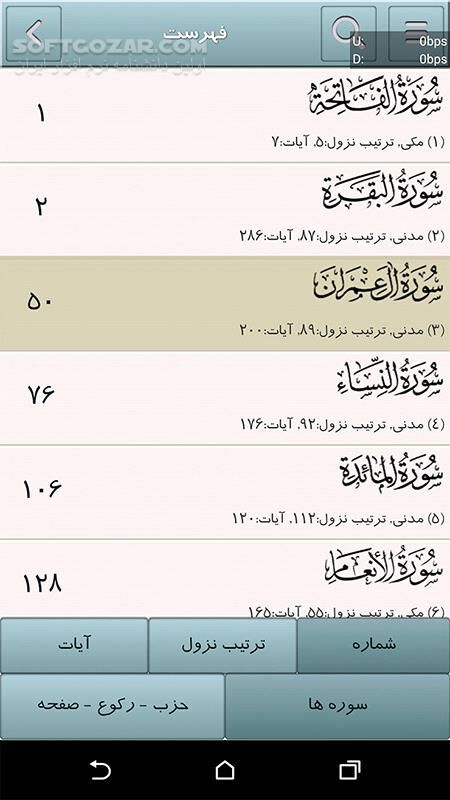 SOFTGOZAR.COM
اولین دانشنامه نرم افزار ایران
فهرست
U: 0bps
D: 0bps
سُورَةُ الفَاتِحَةِ
۱
(۱) مکی, ترتیب نزول:۵, آیات:۷
سُورَةُ البَقَرَةِ
۲
(۲) مدنی, ترتیب نزول:۸۷, آیات:۲۸۶
سُورَةُ آلِ عِمْرَانَ
۵۰
(۳) مدنی, ترتیب نزول:۸۹, آیات:۲۰۰
سُورَةُ النِّسَاءِ
۷۶
(۴) مدنی, ترتیب نزول:۹۲, آیات:۱۷۶
سُورَةُ المَائِدَةِ
۱۰۶
(۵) مدنی, ترتیب نزول:۱۱۲, آیات:۱۲۰
سُورَةُ الأَنْعَامِ
۱۲۸
(۶) مکی, ترتیب نزول:۵۵, آیات:۱۶۵
شماره
ترتیب نزول
آیات
سوره ها
حزب - رکوع - صفحه